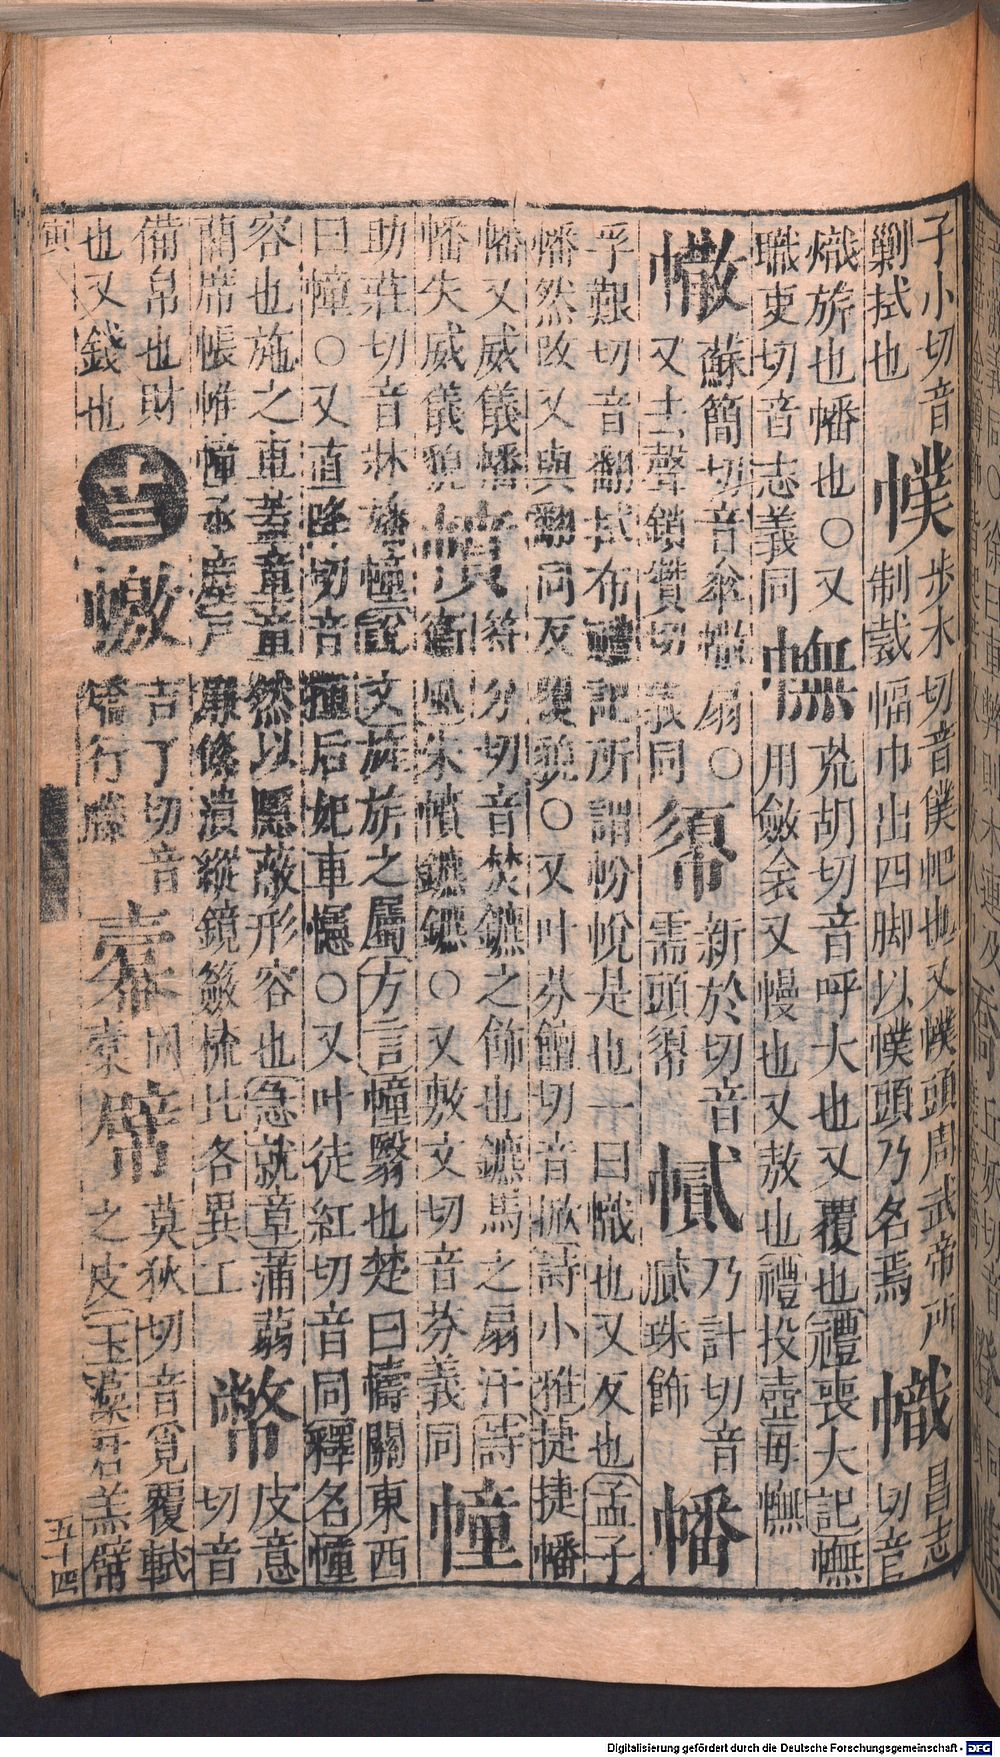 子小切音
剿拭也
幞
步木切音僕帊也又幞頭周武帝所
制裁幅巾出四脚以幞頭乃名焉
幟
昌志
切音
熾旂也幡也○又
職吏切音志義同
幠
荒胡切音呼大也又覆也禮喪大記幠
用斂衾又幔也又敖也禮投壺毋幠
㡠
蘇簡切音傘㡠扇○
又上聲鎖贊切義同
㡏
新於切音
需頭㡏
乃計切音
膩珠飾
幡
孚艱切音翻拭布 記所謂帉帨是也一曰幟也又反也孟子
幡然改又與翻同反覆貌○又叶芬邅切音掀詩小雅捷捷幡
幡又威儀幡
幡失威儀貌
幩
符分切音焚鑣之飾也鑣馬之扇汗詩
衛風朱幩鑣鑣○又敷文切音芬義同
幢
助莊切音牀旛幢說文旌旂之屬方言幢翳也楚曰幬關東西
曰幢○又直降切音 后妃車幰○又叶徒紅切音同釋名幢
容也施之車蓋童童然以隱蔽形容也急就章蒲蒻
藺席帳帷幢承塵戶簾絛潰縱鏡籢梳比各異工
幣
皮意
切音
備帛也財
也又錢也
十三
幯
吉丁切音
行縢
幦
莫狄切音覓覆軾
之皮玉藻君羔幦
寅
五十四
Digitalisierung gefördert durch die Deutsche Forschungsgemeinschaft - DFG